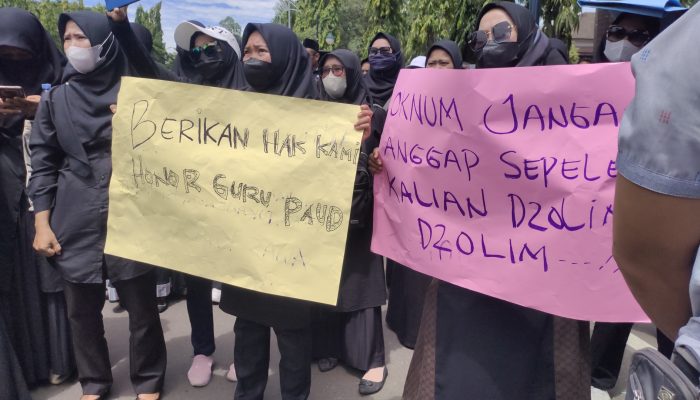 BERIKAN HAK KAMI
HONOR GURU PAUD
OKNUM JANGA
ANGGAP SEPELE
KALIAN DZOLIM
DZOLIM